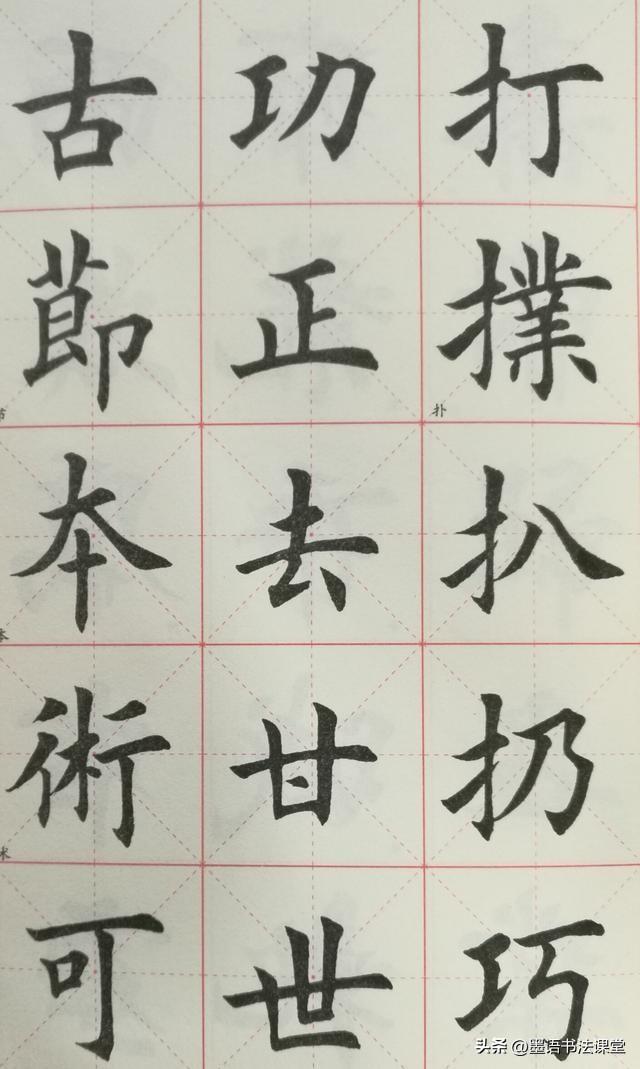 打
撲
扑
扒
扔
巧
功
正
去
甘
世
古
莭
夲
術
可
头条 @墨语书法课堂